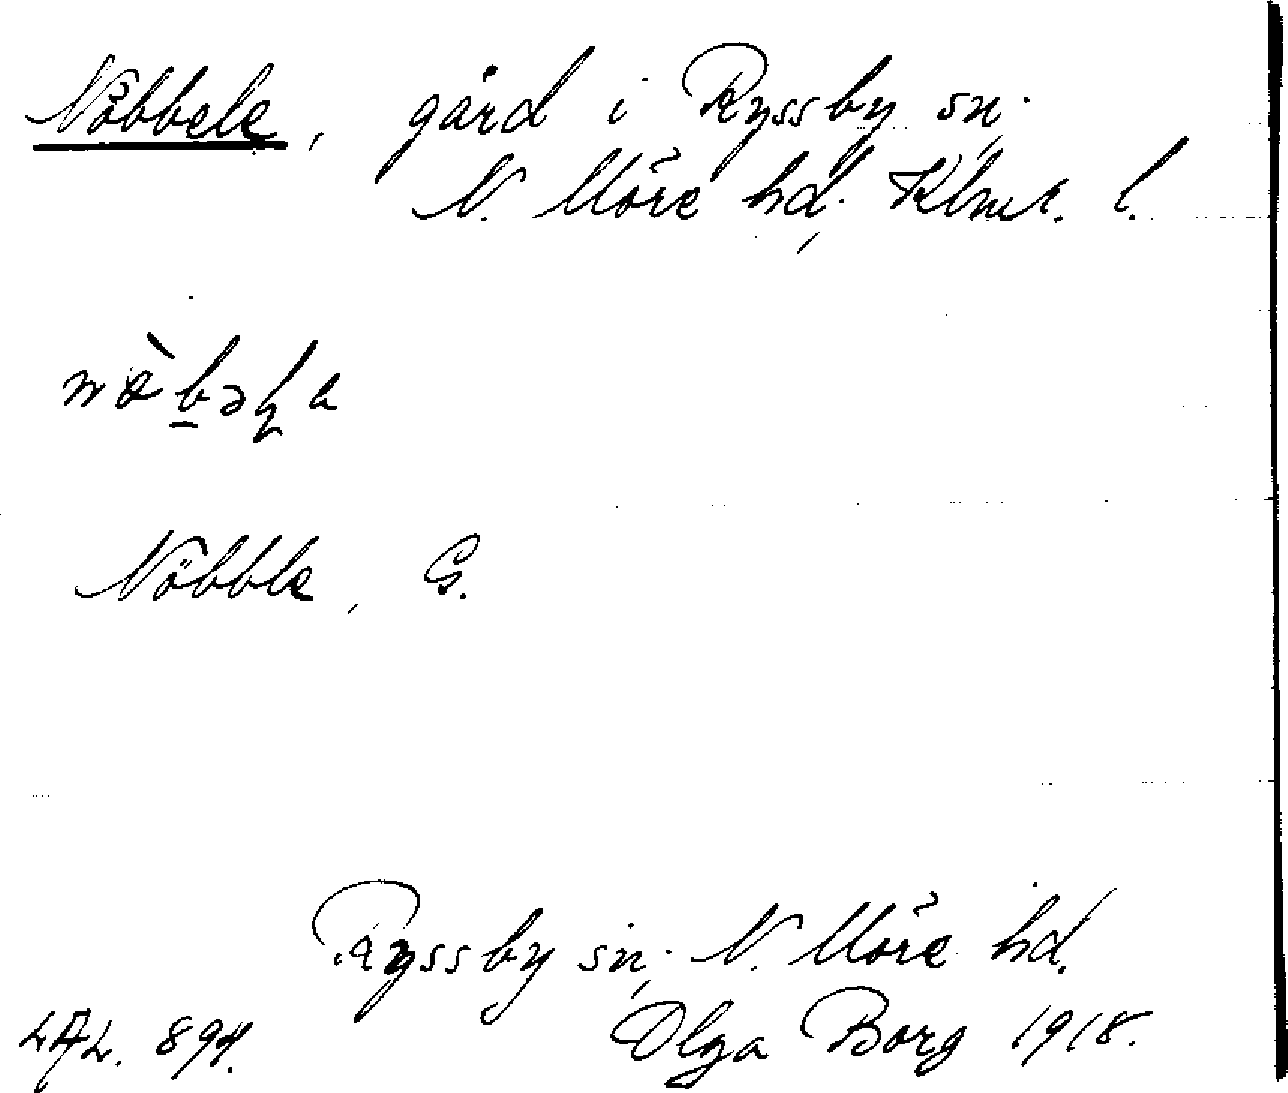 Nöbbele, gård i Ryssby sn.
N. Möre hd, Klmr. l.
Nöbble, G.
Ryssby sn, N. Möre hd.
LAL. 894. Olga Borg 1918.